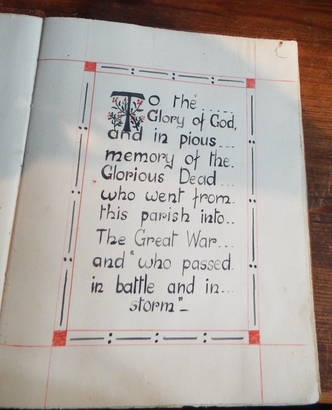 To the ....
Glory of God,
and in pious...
memory of the.
Glorious Dead...
who went from.
this parish into..
The Great War...
and "who passed
in battle and in...
storm"-